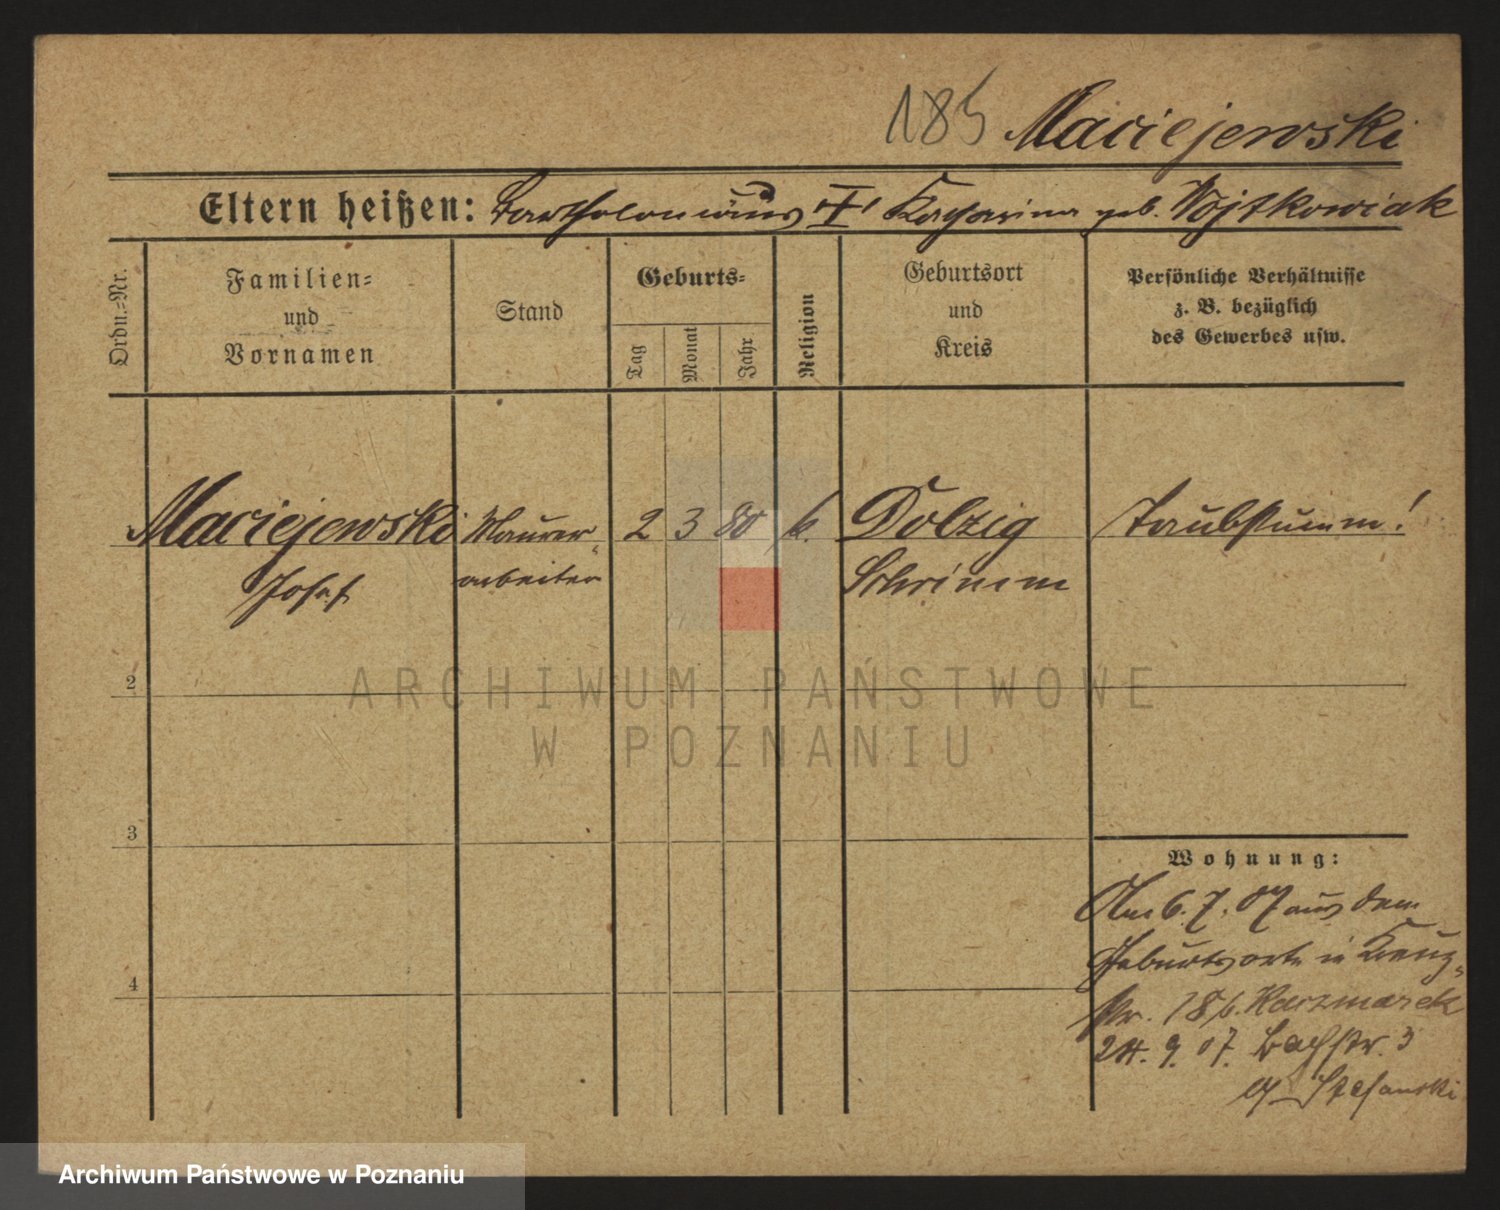 185 Maciejewski
Eltern heißen: Bartholomäus "†" Katharina geb. Wojtkowiak
Ordn.-Nr.
Familien-
und
Vornamen
Stand
Geburts-
Tag
Monat
Jahr
Religion
Geburtsort
und
Kreis
Persönliche Verhältnisse
z. B. bezüglich
des Gewerbes usw.
Maciejewski Maurer- 2 3 80 k. Dolzig Taubstumm!
Josef arbeiter Schrimm
2
3
4
Wohnung:
Am 6. 7. 07 aus dem
Geburtsorte in Kreuz-
str. 18 b. Kaczmarek
24. 9. 07. Bachstr. 3
Stefanski
ARCHIWUM PAŃSTWOWE
W POZNANIU
Archiwum Państwowe w Poznaniu